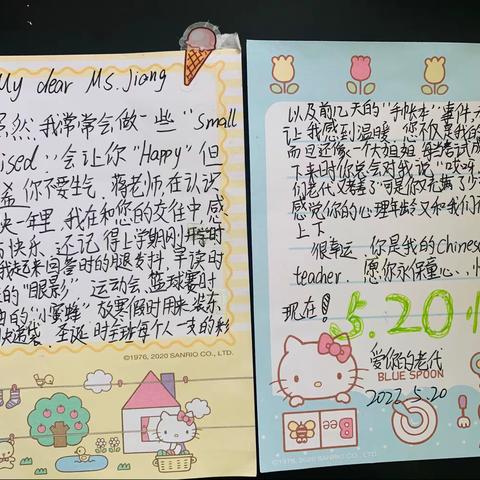 My dear Ms.Jiang
虽然,我常常会做一些"small
ised",会让你"Happy"但
希 你不要生气,蒋老师,在认识
一年里,我在和您的交往中,感
快乐,还记得上学期的开学时
我起来回答时的腿发抖,早读时
的"眼影",运动会、篮球赛时
的"小蜜蜂",放寒假时用来装东
快递袋,圣诞时全班每个人一支的彩
©1976, 2020 SANRIO CO., LTD.
以及前几天的"手账本"事件,
让我感到温暖,您不仅是我的
而且还像一个大姐姐,每当考试成
下来时你总会对我说"哎呀
们老代又错了,可是你只死扁了少
感觉你的心理年龄又和我们
上下
很幸运,你是我的Chinese
teacher,愿你永保童心、
现在!
5.20
爱你的老代
BLUE SPOON
2022.5.20
BEE
©1976, 2020 SANRIO CO., LTD.